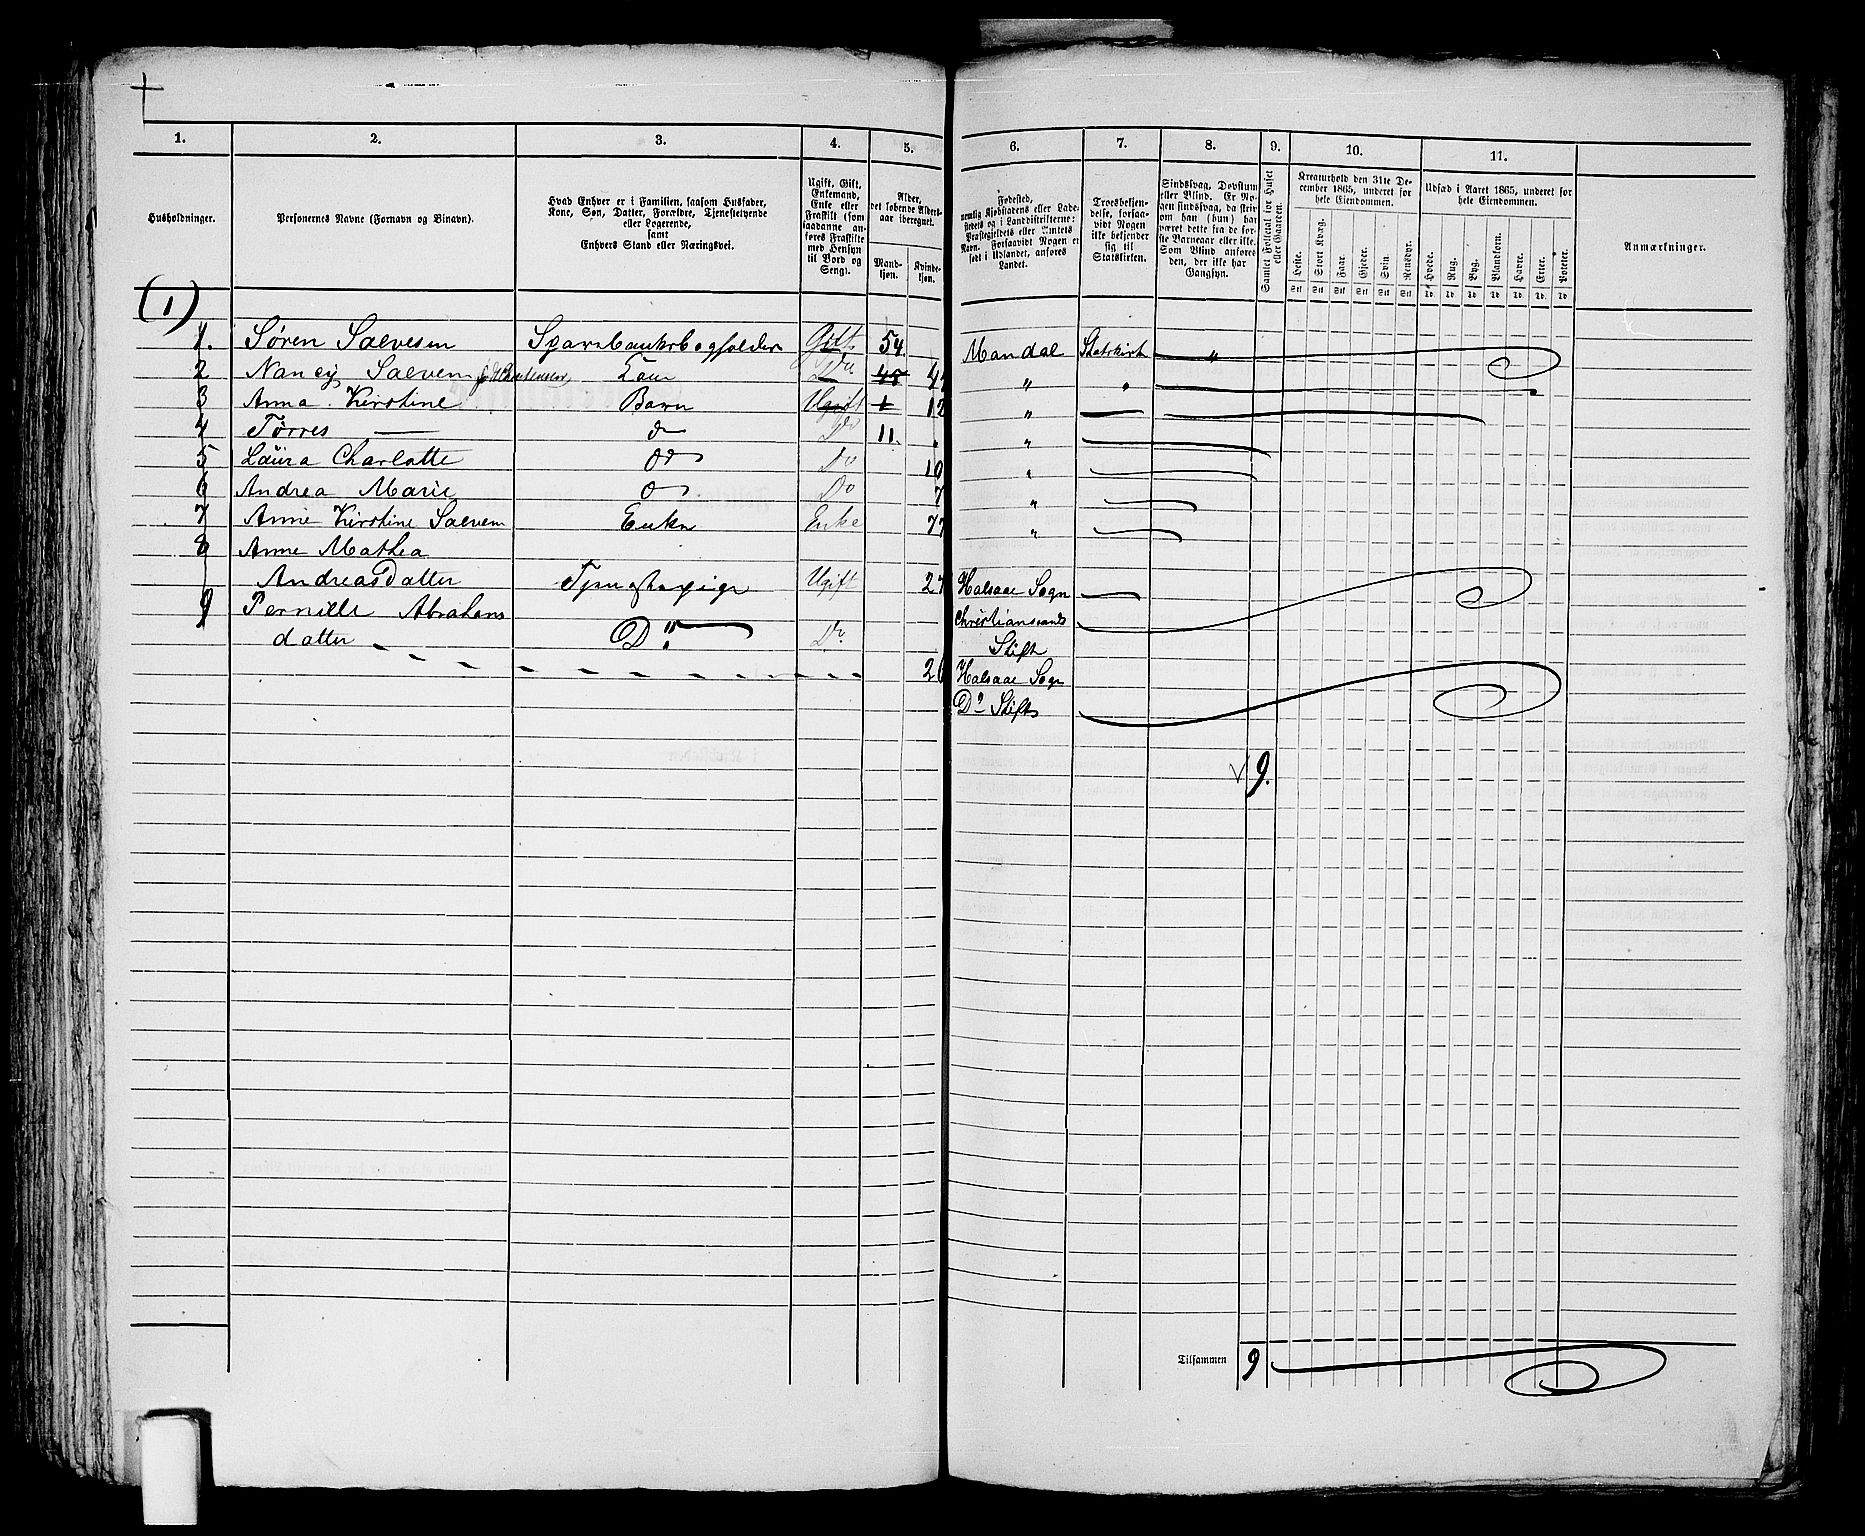 1. 2. 3. 4. 5. 6. 7. 8. 9. 10. 11.
Husholdninger.
Personernes Navne (Fornavn og Binavn).
Hvad Enhver er i Familien, saasom Husfader,
Kone, Søn, Datter, Forældre, Tjenestetyende
eller Logerende,
samt
Enhvers Stand eller Næringsvei.
Ugift, Gift,
Enkemand,
Enke eller
Fraskilt (som
saadanne an-
føres Fraskilte
med Hensyn
til Bord og
Seng).
Alder,
det løbende Alders-
aar iberegnet.
Mand-
kjøn.
Kvinde-
kjøn.
Fødested,
nemlig Kjøbstadens eller Lade-
stedets og i Landdistrikterne:
Præstegjeldets eller Amtets
Navn. Forsaavidt Nogen er
født i Udlandet, anføres
Landet.
Troesbekjen-
delse, forsaa-
vidt Nogen
ikke bekjender
sig til
Statskirken.
Sindssvag, Døvstum
eller Blind. Er No-
gen sindssvag, da skriv
om han (hun) har
været dette fra de før-
ste Barneaar eller ikke.
Som Blind anføres
den, der ikke har
Gangsyn.
Samlet Folketal for Huset
eller Gaarden.
Kreaturhold den 31te De-
cember 1865, underet for
hele Eiendommen.
Heste. Stort Kvæg. Faar. Gjeder. Svin. Rensdyr.
Stk Stk Stk Stk Stk Stk
Udsæd i Aaret 1865, underet for
hele Eiendommen.
Hvede. Rug. Byg. Blandkorn. Havre. Erter. Poteter.
Td. Td. Td. Td. Td. Td. Td.
Anmærkninger.
(1)
1. Søren Salvesen Sparebanksbogholder Gift 54 Mandal Statskirk "
2 Nancy Salvesen Do 45 4 " "
3 Anna Kirstine Barn Ugift 1 12 "
4 Tørres — Do 11 " "
5 Laura Charlotte Do Do 10 "
6 Andrea Marie Do Do 7 "
7 Anne Kirstine Salvesen Enke Enke 77 "
8 Anne Mathea
Andreasdatter Tjenestepige Ugift 27 Halsaae Sogn
9 Pernille Abrahams Christiansands
datter Do Do Stift
26 Halsaae Sogn
Do Stift
9.
Tilsammen 9